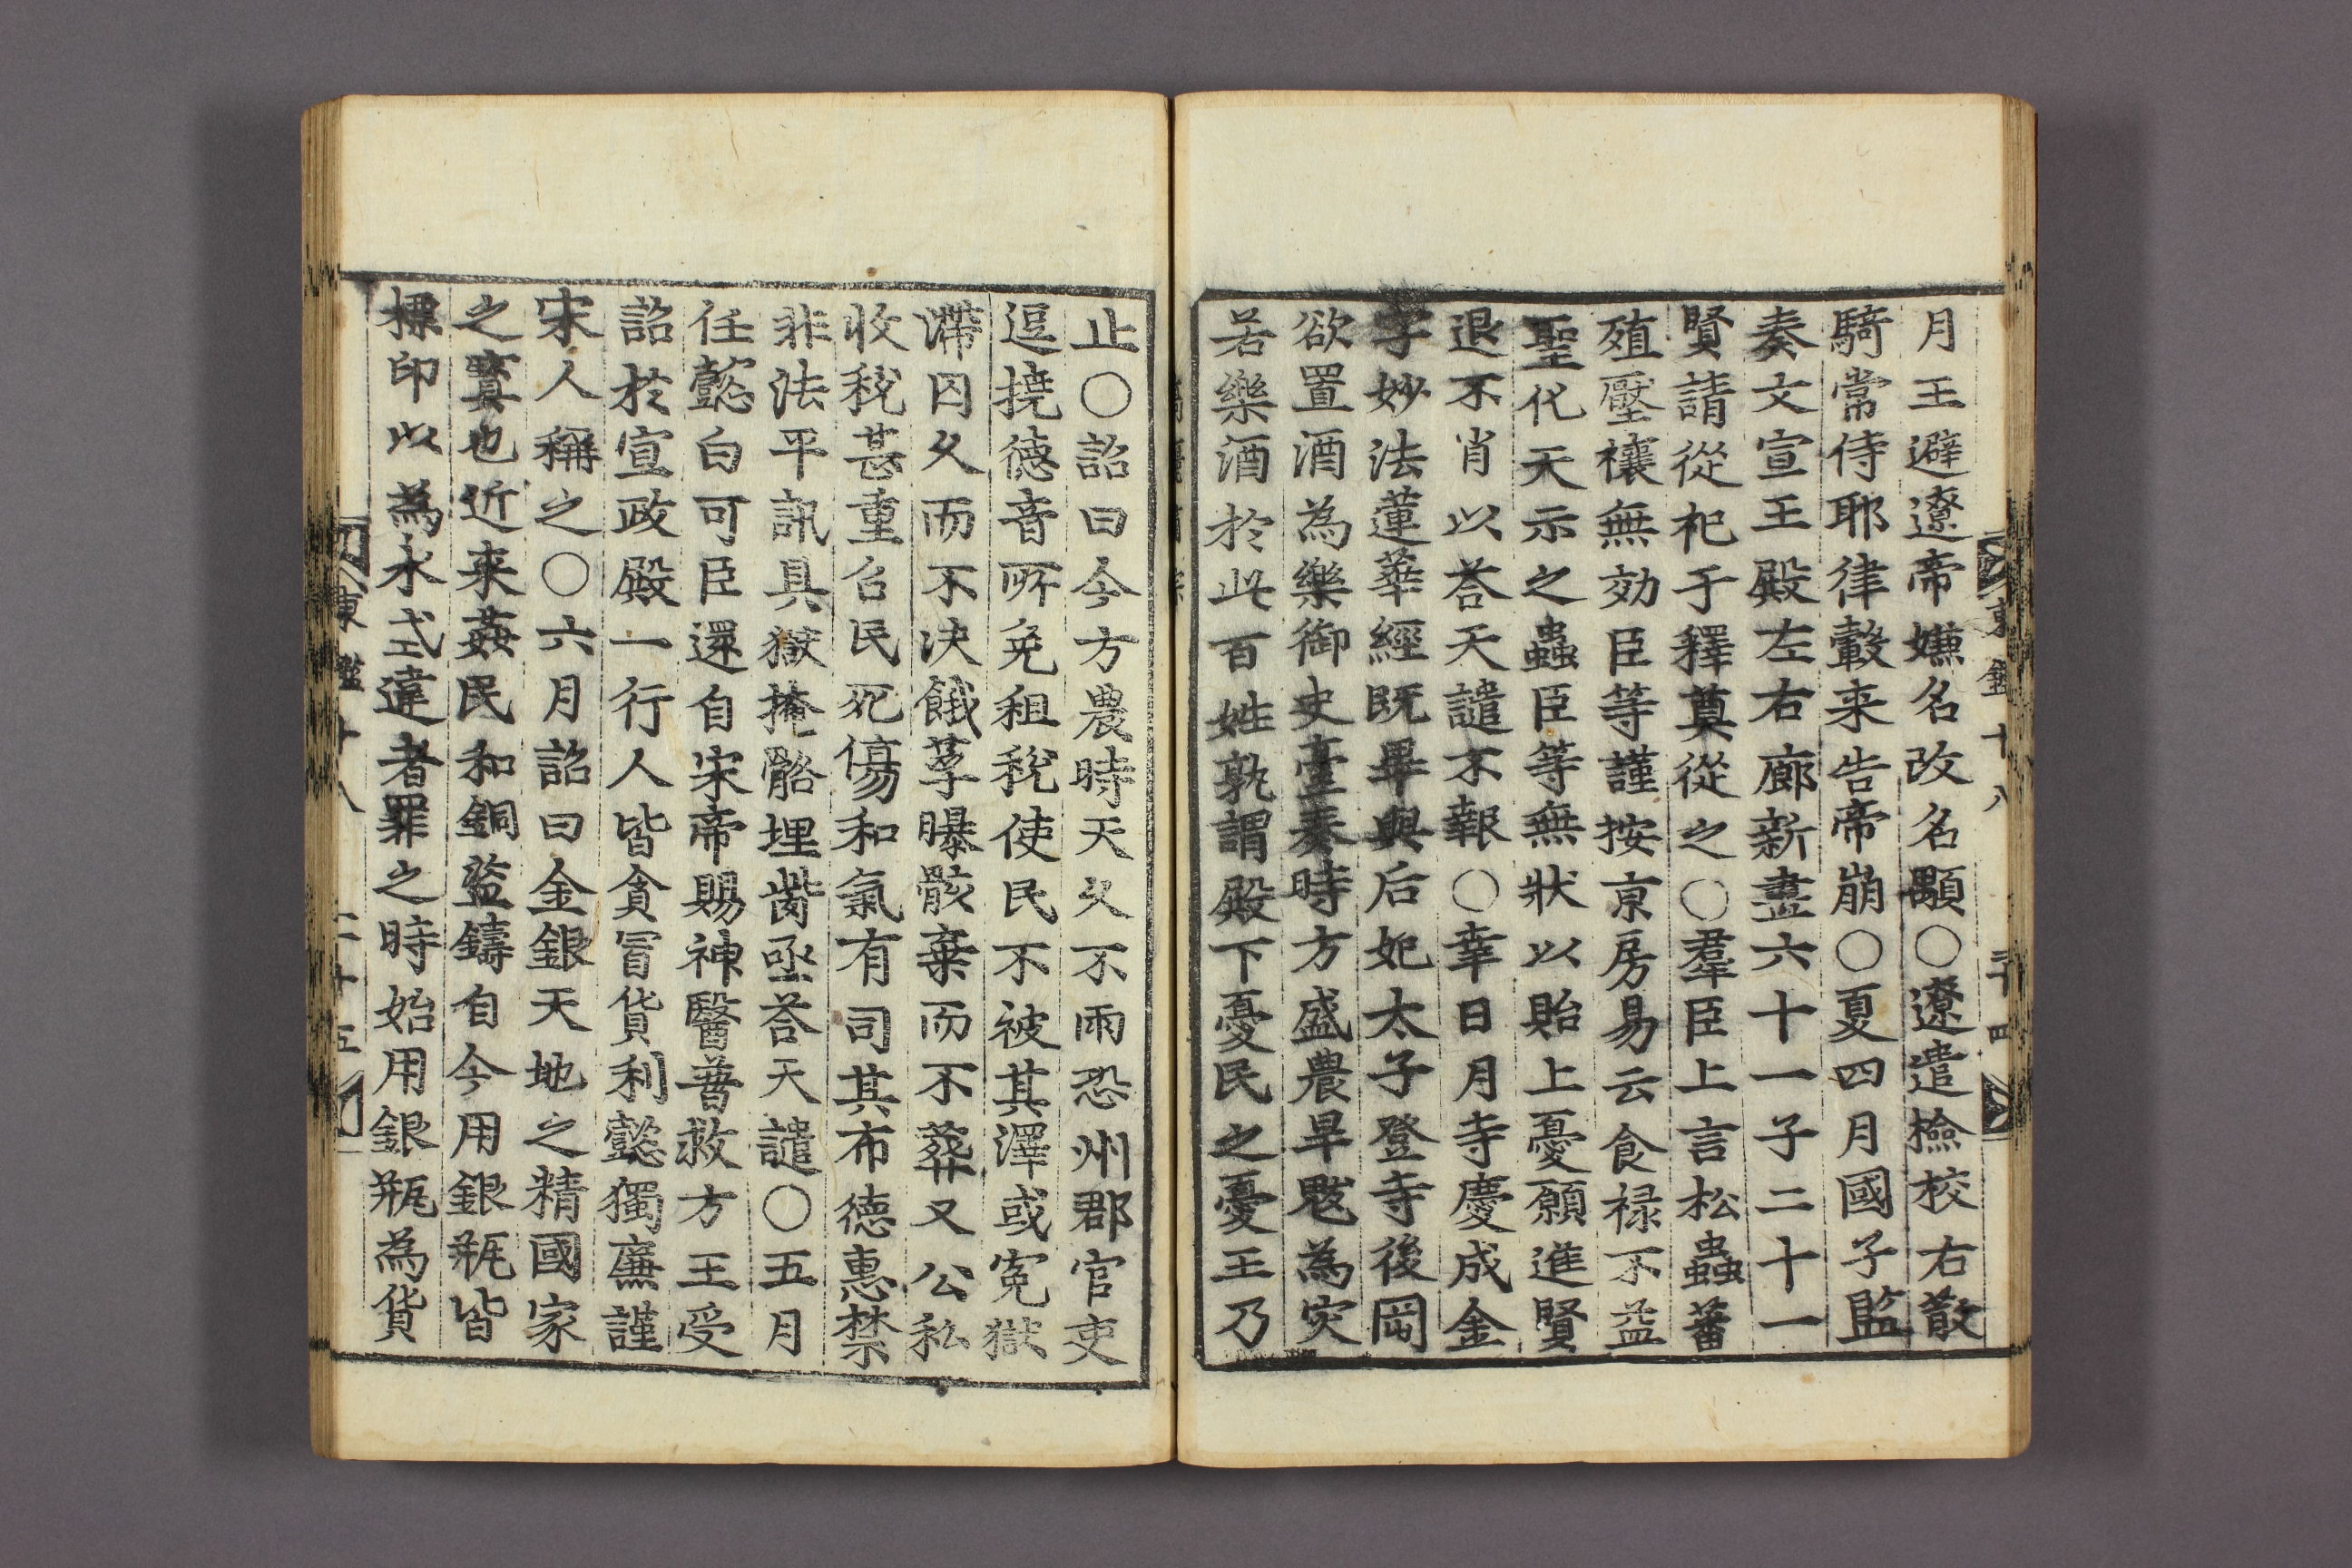 月王避遼帝嫌名改名顒○遼遣檢校右散
騎常侍耶律轂来告帝崩○夏四月國子監
奏文宣王殿左右廊新畫六十一子二十一
賢請從祀于釋奠從之○羣臣上言松蟲蕃
殖壓禳無効臣等謹按京房易云食禄不益
聖化天示之蟲臣等無狀以貽上憂願進賢
退不肖以荅天譴不報○幸日月寺慶成金
字妙法蓮華經既畢與后妃太子登寺後岡
欲置酒為樂御史臺奏時方盛農旱魃為灾
若樂酒於此百姓孰謂殿下憂民之憂王乃
東鑑十八
三十四
止○詔曰今方農時天久不雨恐州郡官吏
逗撓德音所免租稅使民不被其澤或寃獄
滯囚久而不决餓莩曝骸棄而不葬又公私
收稅甚重召民死傷和氣有司其布德惠禁
非法平訊具獄掩骼埋胔亟荅天譴○五月
任懿白可臣還自宋帝賜神醫普救方王受
詔於宣政殿一行人皆貪冒貨利懿獨廉謹
宋人稱之○六月詔曰金銀天地之精國家
之寳也近来姦民和銅盜鑄自今用銀瓶皆
標印以為永式違者罪之時始用銀瓶為貨
東鑑十八
三十五